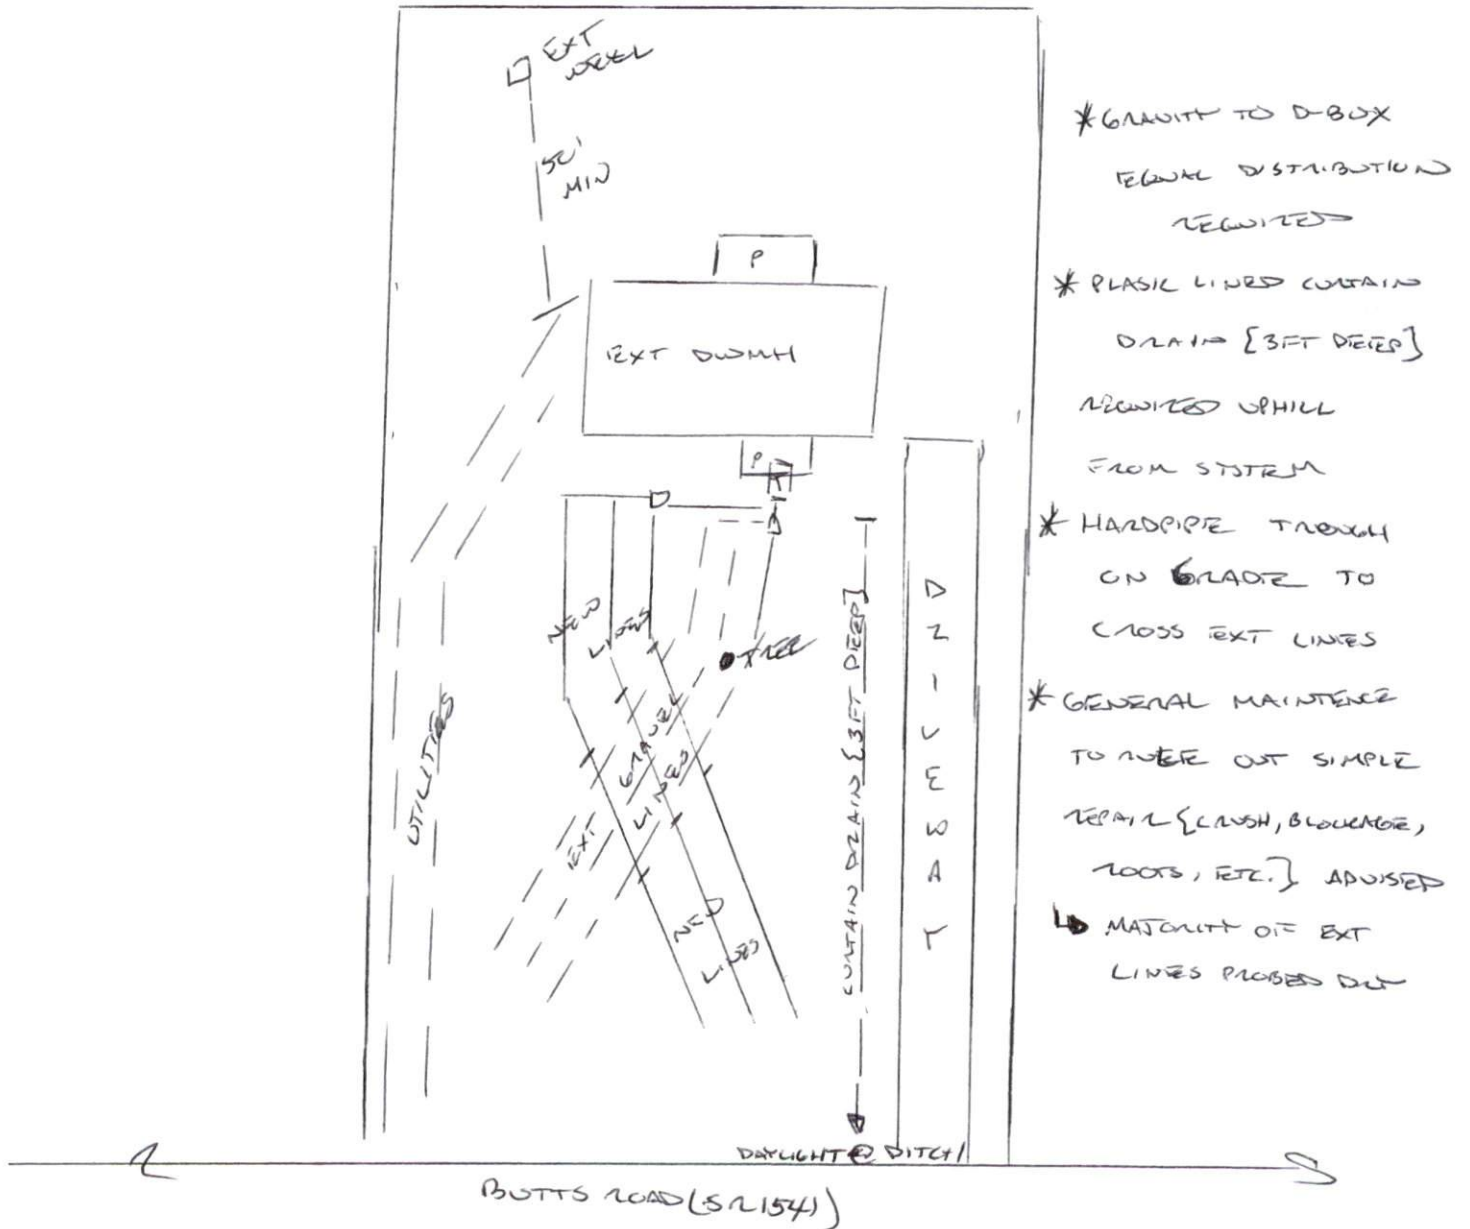 EXT
WELL
50'
MIN
P
EXT DWMH
P
T
D
B
NEW
LINES
TREE
EXT
GRAVEL
LINES
NEW
LINES
UTILITIES
CURTAIN DRAIN {3FT DEEP}
DRIVEWAY
DAYLIGHT @ DITCH
BUTTS ROAD (SR1541)
* GRAVITY TO D-BOX
EQUAL DISTRIBUTION
REQUIRED
* PLASIC LINED CURTAIN
DRAIN {3FT DEEP}
REQUIRED UPHILL
FROM SYSTEM
* HARDPIPE TROUGH
ON GRADE TO
CROSS EXT LINES
* GENERAL MAINTENCE
TO RULE OUT SIMPLE
REPAIR {CRUSH, BLOCKAGE,
ROOTS, ETC.} ADVISED
MAJORITY OF EXT
LINES PROBED DRY